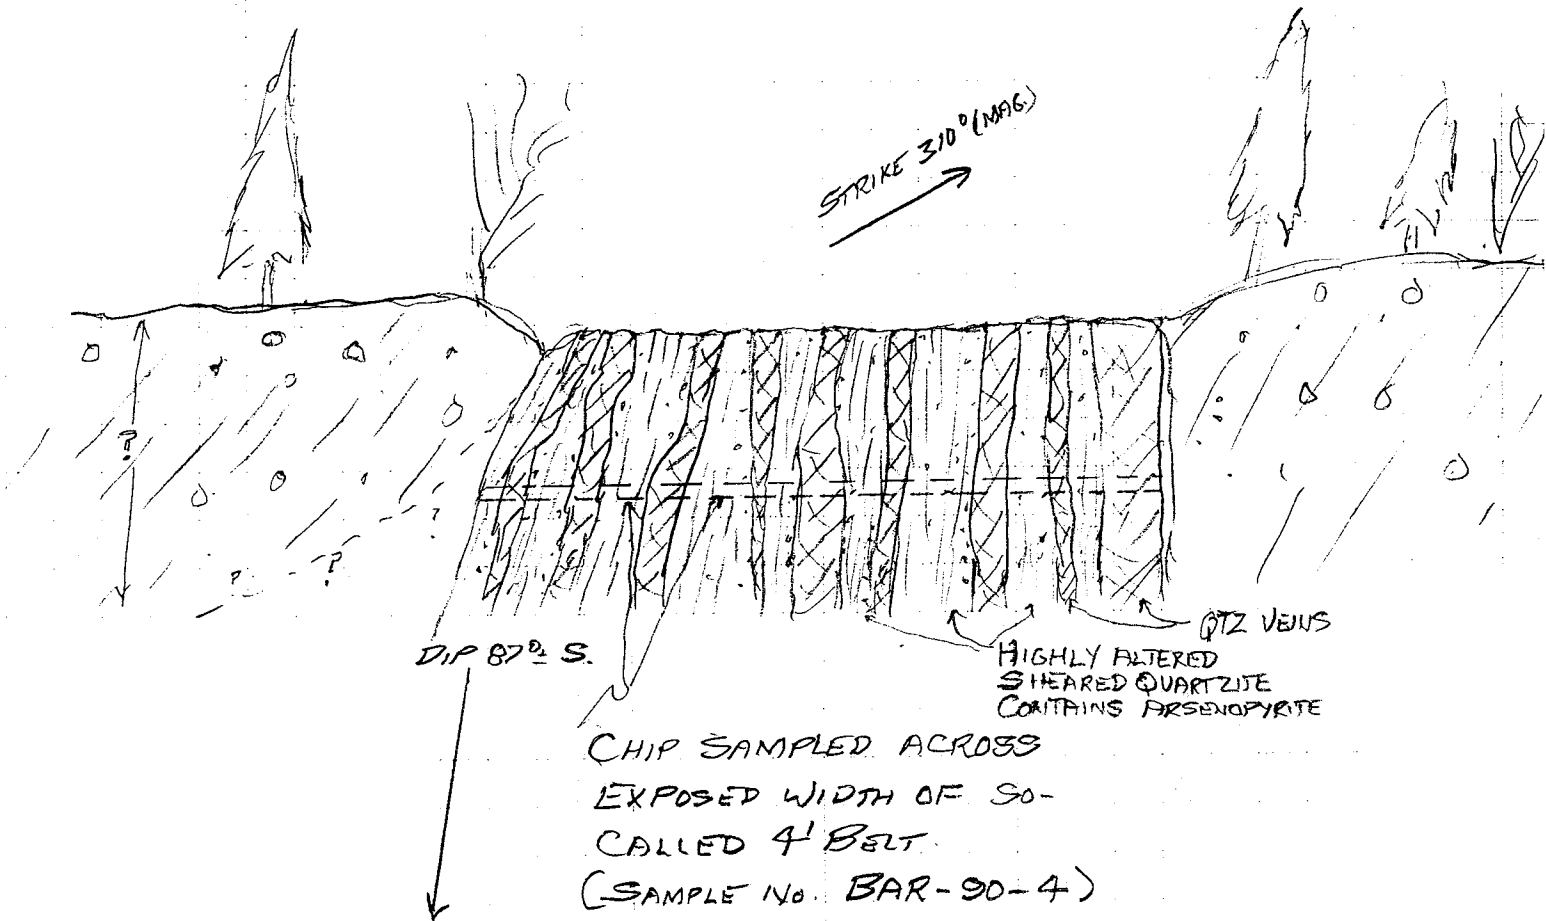 STRIKE 310° (MAG.)
?
?
?
?
DIP 87°± S.
QTZ VEINS
HIGHLY ALTERED
SHEARED QUARTZITE
CONTAINS ARSENOPYRITE
CHIP SAMPLED ACROSS
EXPOSED WIDTH OF SO-
CALLED 4' BELT.
(SAMPLE No. BAR-90-4)